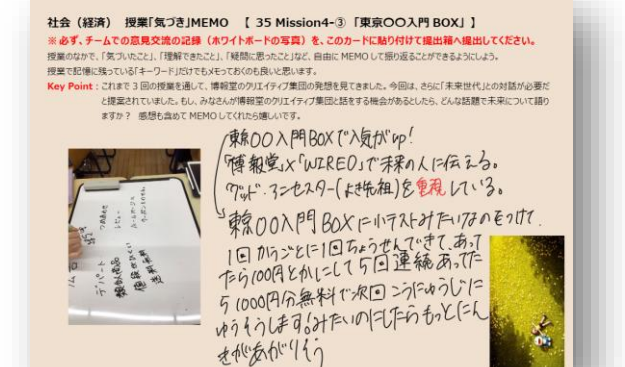 社会（経済） 授業「気づき」MEMO 【 35 Mission4-③ 「東京〇〇入門 BOX」】
※必ず、チームでの意見交流の記録（ホワイトボードの写真）を、このカードに貼り付けて提出箱へ提出してください。
授業のなかで、「気づいたこと」、「理解できたこと」、「疑問に思ったこと」など、自由に MEMO して振り返ることができるようにしよう。
授業で記憶に残っている「キーワード」だけでもメモっておくのも良いと思います。
Key Point：これまで 3 回の授業を通して、博報堂のクリエイティブ集団の発想を見てきました。今回は、さらに「未来世代」との対話が必要だ
と提案されていました。もし、みなさんが博報堂のクリエイティブ集団と話をする機会があるとしたら、どんな話題で未来について語り
ますか？ 感想も含めて MEMO してくれたら嬉しいです。
東京〇〇入門BOXで人気がup!
「博報堂」×「WIRED」で未来の人に伝える。
グッド・アンセスター(よき先祖)を重視している。
東京〇〇入門BOXに小テストみたいなのをつけて、
1回かうごとに1回ちょうせんできて、あって
たら100円とかにして5回連続あってた
ら1000円分無料で次回こうにゅうじに
ゆうそうします!みたいのにしたらもっとにん
きがあがりそう
デパート
つめあわせ
レビュー
ホームページ